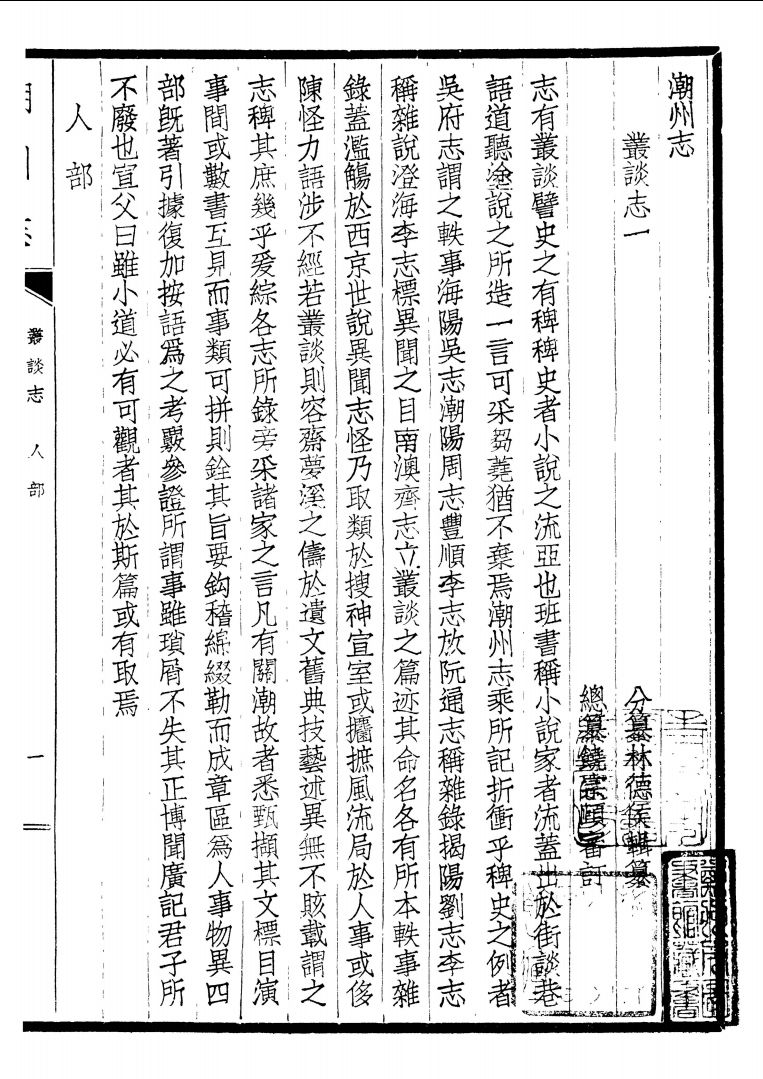 潮州志
叢談志一
分纂林德侯輯纂
總纂饒宗頤審訂
志有叢談譬史之有稗稗史者小說之流亞也班書稱小說家者流蓋出於街談巷
語道聽塗說之所造一言可采芻蕘猶不棄焉潮州志乘所記折衝乎稗史之例者
吳府志謂之軼事海陽吳志潮陽周志豐順李志放阮通志稱雜錄揭陽劉志李志
稱雜說澄海李志標異聞之目南澳齊志立叢談之篇迹其命名各有所本軼事雜
錄蓋濫觴於西京世說異聞志怪乃取類於搜神宣室或攟摭風流局於人事或侈
陳怪力語涉不經若叢談則容齋夢溪之儔於遺文舊典技藝述異無不賅載謂之
志稗其庶幾乎爰綜各志所錄旁采諸家之言凡有關潮故者悉甄擷其文標目演
事間或數書互見而事類可拼則銓其旨要鈎稽綿綴勒而成章區爲人事物異四
部旣著引據復加按語爲之考覈參證所謂事雖瑣屑不失其正博聞廣記君子所
不廢也宣父曰雖小道必有可觀者其於斯篇或有取焉
人部
叢談志 人部
一